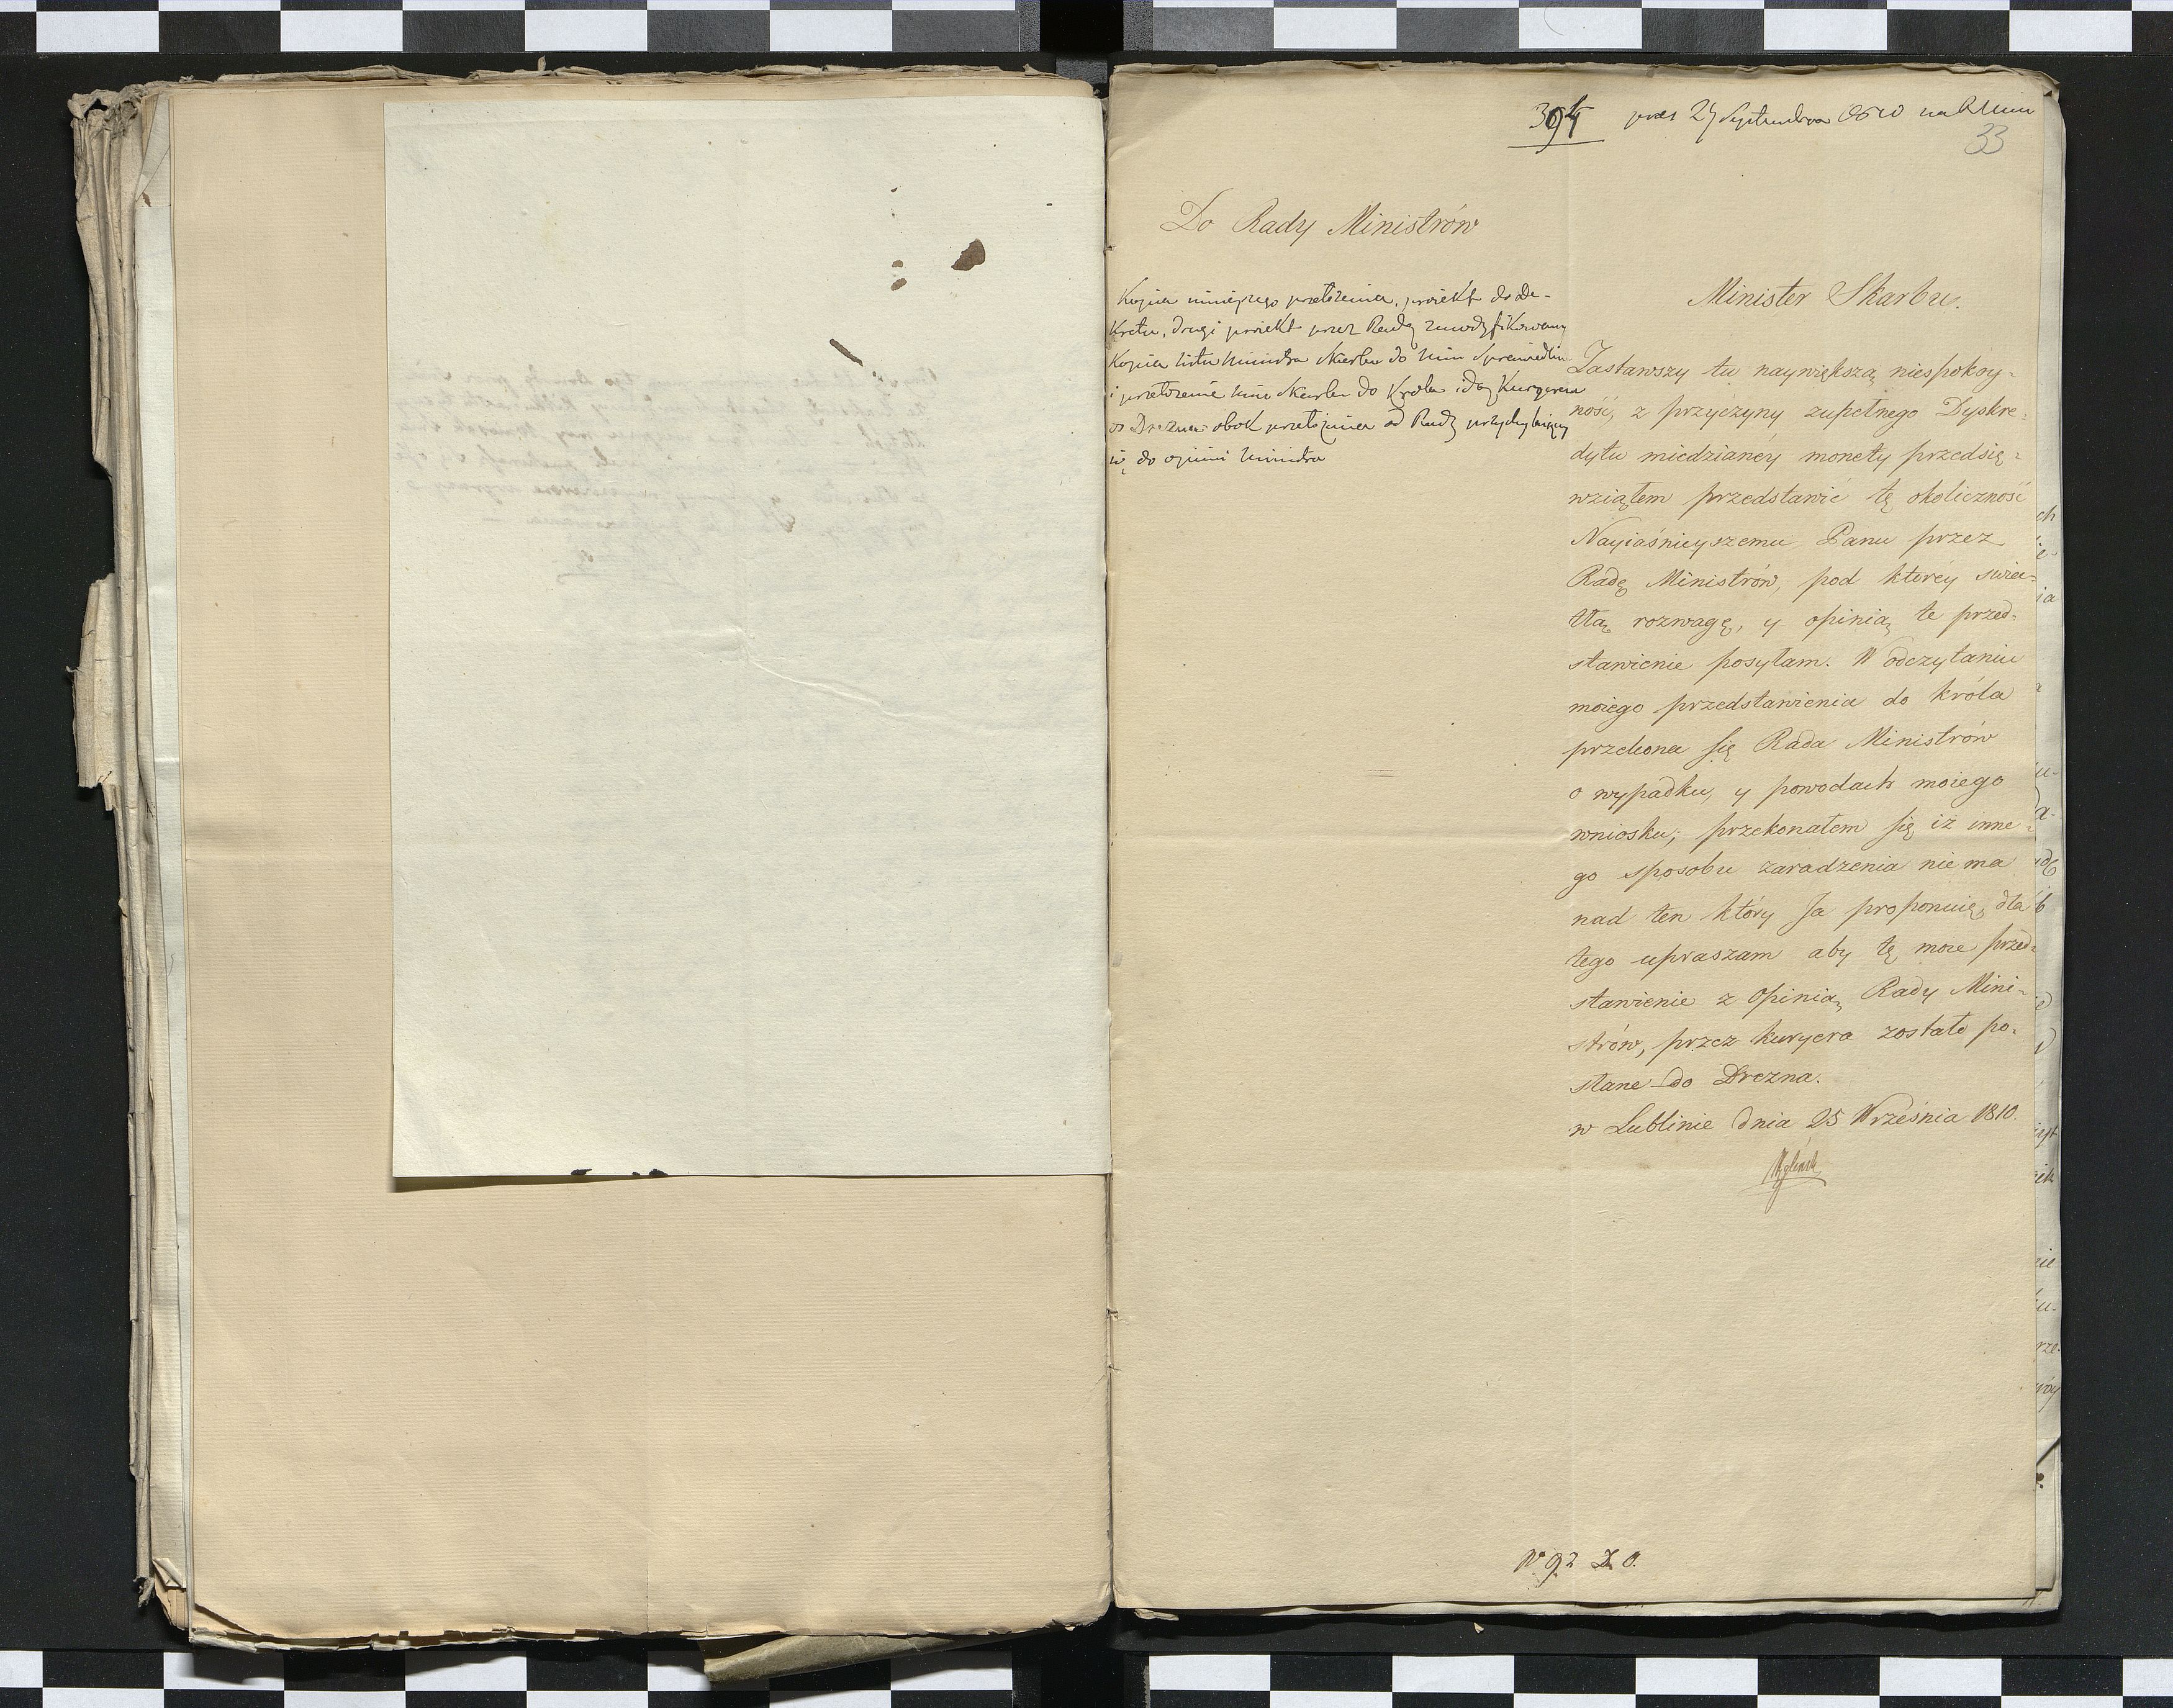 394 pras 27 Septembra 1810 na R Min
33
Do Rady Ministrów
Kopia ninieyszego przełożenia, proiekt do De-
kretu, drugi proiekt przez Radę zmodyfikowany
Kopia listu Ministra Skarbu do Min Sprawiedliw
i przełożenie Min Skarbu do Króla idą Kuryerem
do Drezna obok przełożenia od Rady przychylaiącey
się do opinii Ministra
Minister Skarbu.
Zastawszy tu naywiększą niespokoy-
ność, z przyczyny zupełnego Dyskre-
dytu miedzianéy monety przedsię-
wziąłem przedstawić tę okoliczność
Nayiaśnieyszemu Panu przez
Radę Ministrów, pod któréy świa-
tłą rozwagę, y opinią te przed-
stawienie posyłam. W odczytaniu
moiego przedstawienia do króla
przekona się Rada Ministrów
o wypadku, y powodach moiego
wniosku; przekonałem się iż inne-
go sposobu zaradzenia nie ma
nad ten który Ja proponuię, dla
tego upraszam aby tę moie przed-
stawienie z Opinią Rady Mini-
strów, przez kuryera zostało po-
słane do Drezna.
w Lublinie dnia 25 Września 1810.
N° 92 D. O.